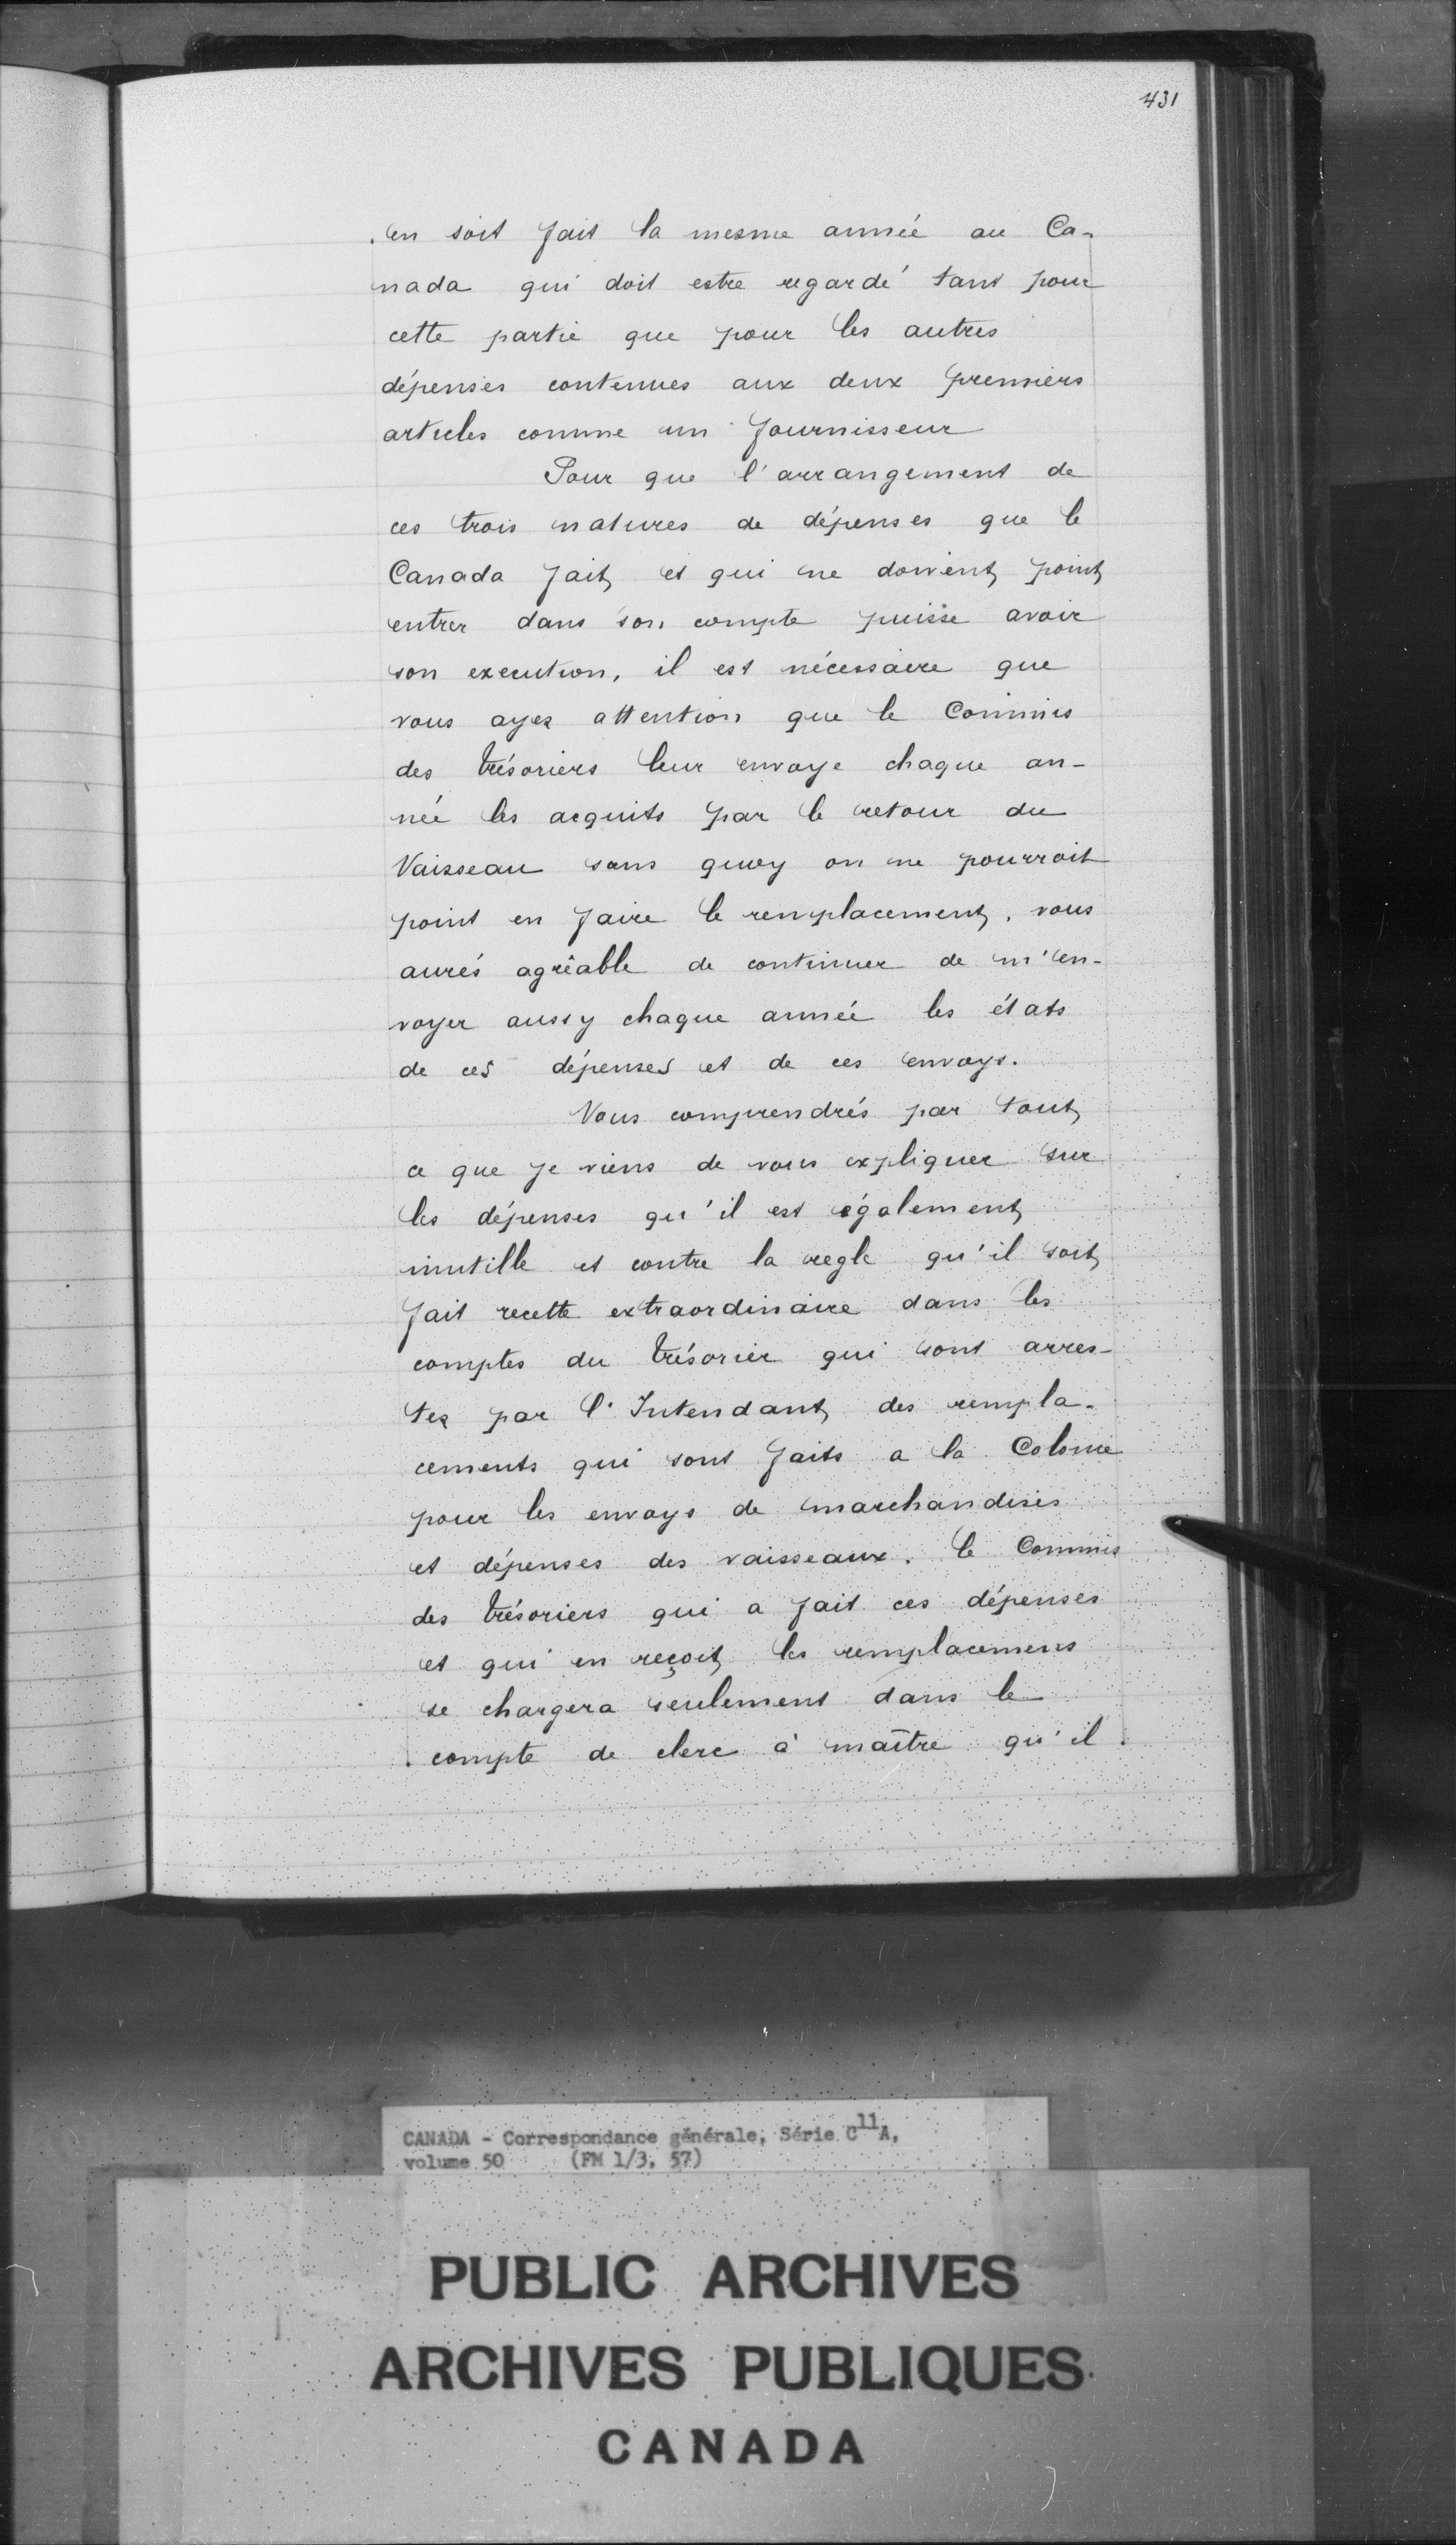 431
en soit fait la mesme année au Ca-
nada qui doit estre regardé tant pour
cette partie que pour les autres
dépenses contenues aux deux premiers
articles comme un fournisseur
Pour que l'arrangement de
ces trois natures de dépenses que le
Canada fait, et qui ne doivent point
entrer dans son compte puisse avoir
son execution, il est nécessaire que
vous ayez attention que le Commis
des trésoriers leur envoye chaque an-
née les acquits par le retour du
Vaisseau sans quoy on ne pourroit
point en faire le remplacement, vous
aurés agréable de continuer de m'en-
voyer aussy chaque année les états
de ces dépenses et de ces envoys.
Vous comprendrés par tout
ce que je viens de vous expliquer sur
les dépenses qu'il est également
inutille et contre la regle qu'il soit
fait recette extraordinaire dans les
comptes du trésorier qui sont arres-
tez par l'Intendant des rempla-
cements qui sont faits a la Colonie
pour les envoys de marchandises
et dépenses des vaisseaux. le Commis
des trésoriers qui a fait ces dépenses
et qui en reçoit les remplacemens
se chargera seulement dans le
compte de clerc à maître qu'il
CANADA - Correspondance générale, Série C11A,
volume 50 (FM 1/3, 57)
PUBLIC ARCHIVES
ARCHIVES PUBLIQUES
CANADA